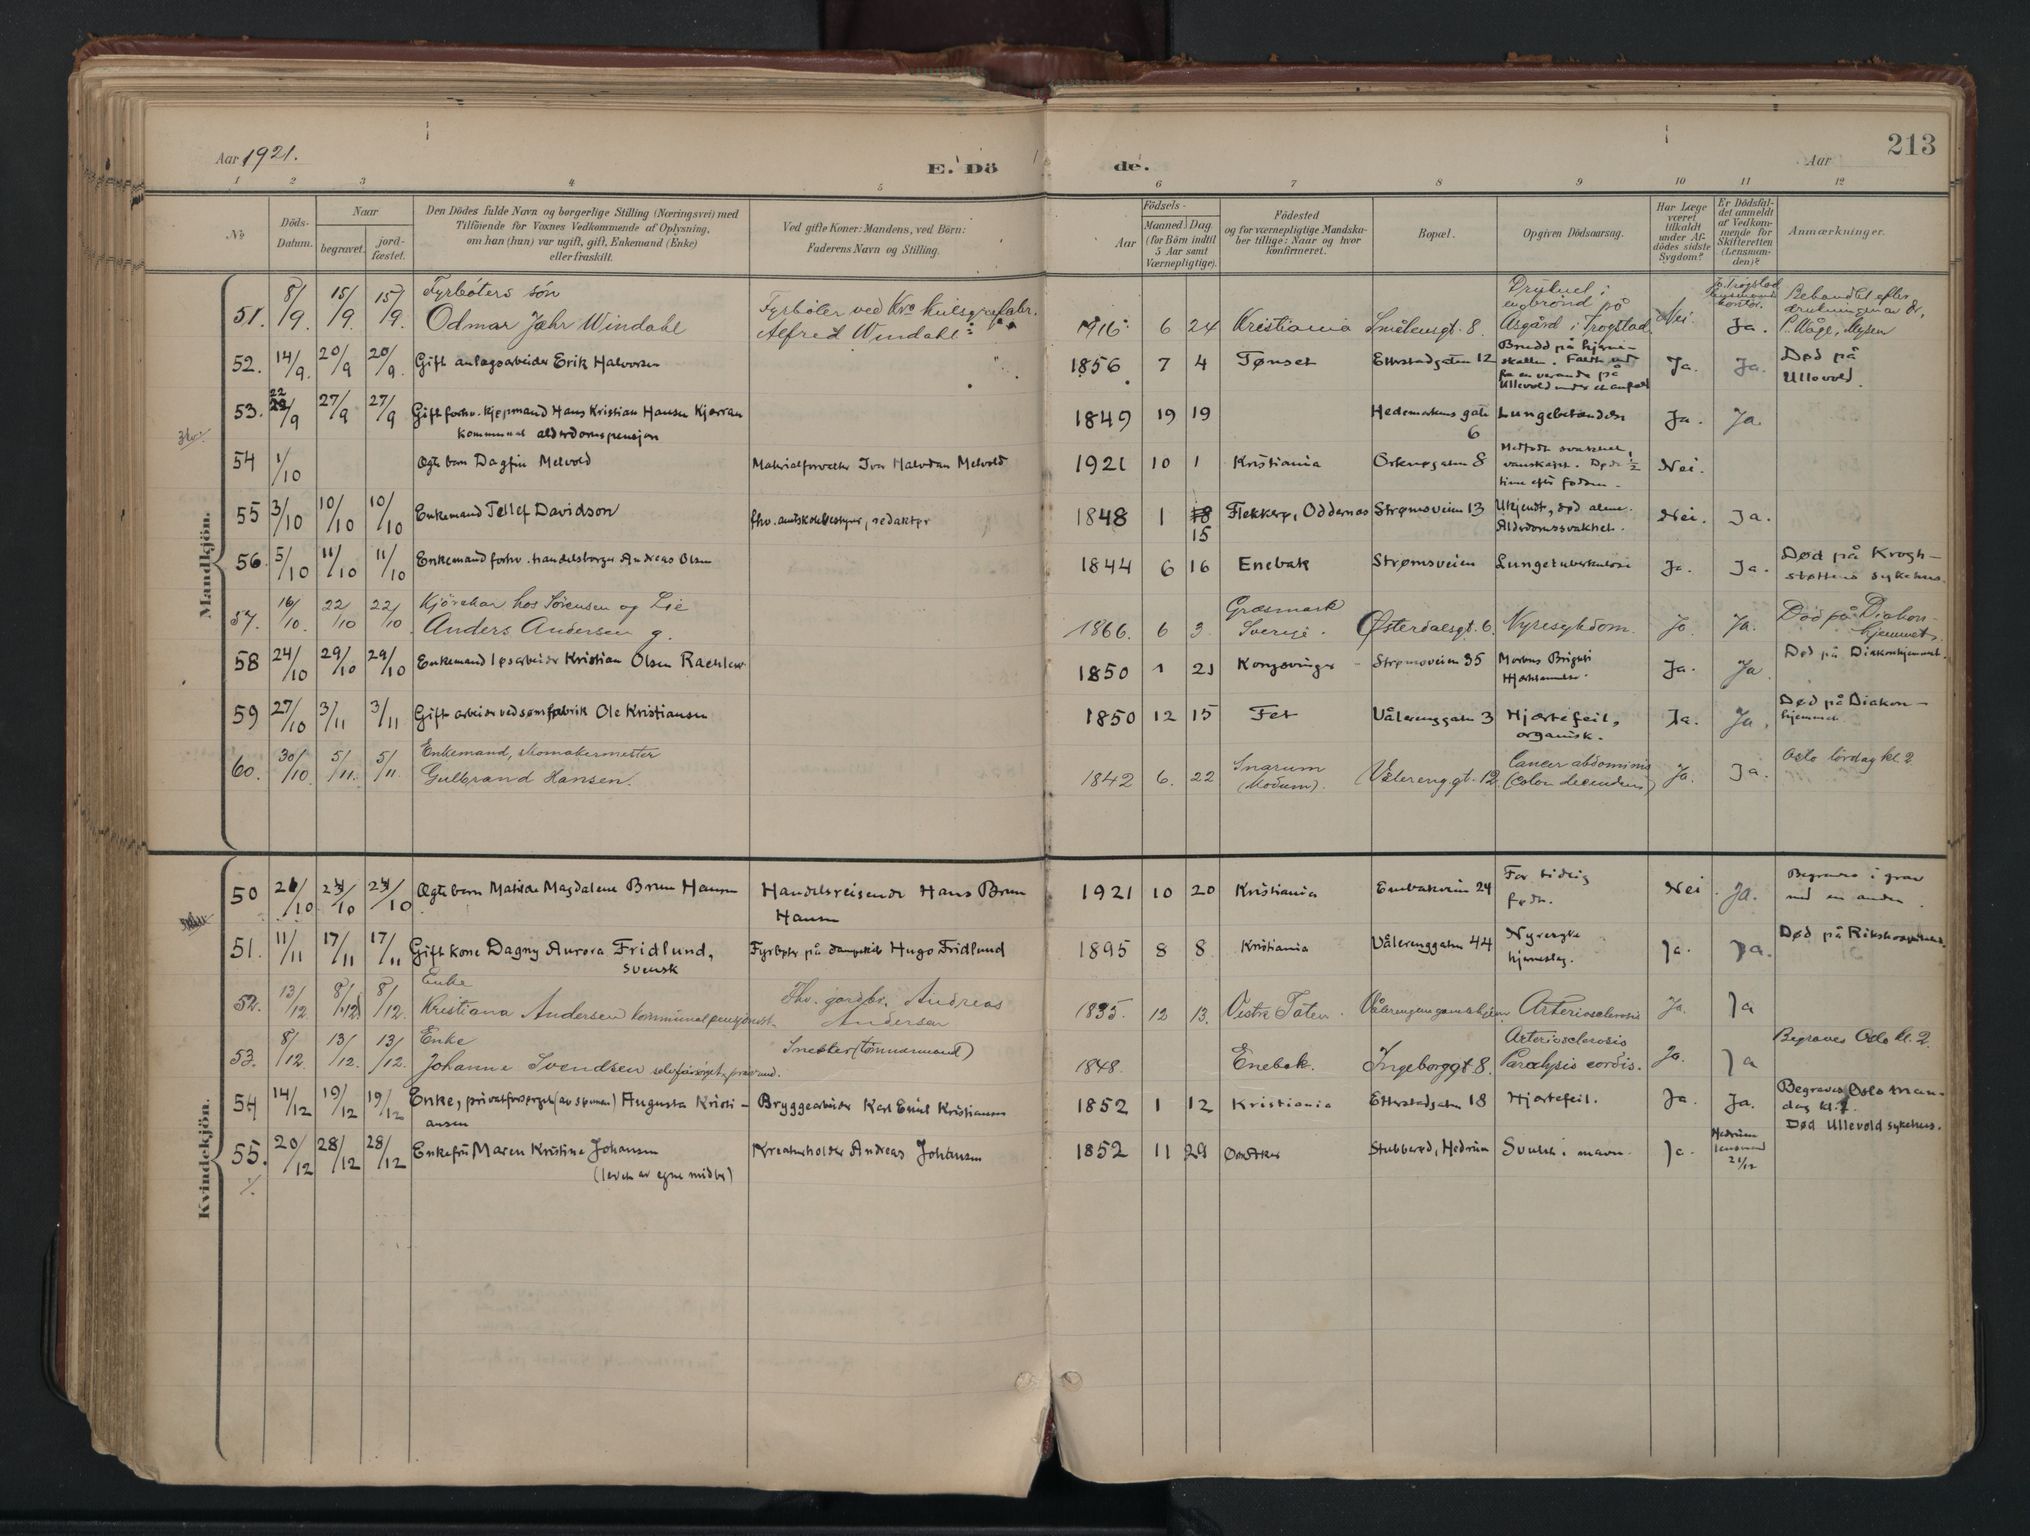 Aar 1921.
E. Döde.
Aar
213
1 2 3 4 5 6 7 8 9 10 11 12
No.
Döds-Datum.
Naar
begravet.
jord-fæstet.
Den Dödes fulde Navn og borgerlige Stilling (Næringsvei) med
Tilföiende for Voxnes Vedkommende af Oplysning,
om han (hun) var ugift, gift, Enkemand (Enke)
eller fraskilt.
Ved gifte Koner: Mandens, ved Börn:
Faderens Navn og Stilling.
Aar
Födsels-
Maaned Dag
(for Börn indtil
5 Aar samt
Værnepligtige).
Födested
og for værnepligtige Mandska-
ber tillige: Naar og hvor
konfirmeret.
Bopæl.
Opgiven Dödsaarsag.
Har Læge
været
tilkaldt
under Af-
dödes sidste
Sygdom?
Er Dödsfal-
det anmeldt
af Vedkom-
mende for
Skifteretten
(Lensman-
den)?
Anmærkninger.
Mandkjön.
51. 8/9 15/9 15/9 Fyrböters sön
Odmar Jahr Windahl
Fyrböter ved Kra
Alfred Windahl
1916 6 24 Kristiania Smålensgt. 8.
på
Asgård i Trogstad Nei. Ja.
Behandlet efter
52. 14/9 20/9 20/9 Gift anlagsarbeider Erik Halvorsen 1856 7 4 Tønset Etterstadgaten 12
Brudd på hjerne-
skallen. Faldt ut
fra en veranda på
Ullevold under et anfald
Ja. Ja. Død på
Ullevold.
53. 22/9 27/9 27/9 Gift forhv. kjøpmand Hans Kristian Hansen Kjærran
kommunal alderdomspensjon
1849 19 19 Hedemarkens gate
6
Lungebetændelse Ja. Ja.
54 1/10 Ægte barn Dagfin Melvold Materialforvalter Ivar Halvdan Melvold 1921 10 1 Kristiania 8
Medfødt svakhet,
Døde 1/2
time efter fødsn.
Nei.
55 3/10 10/10 10/10 Enkemand Tellef Davidson fhv. amtsskolebestyrer, redaktør 1848 1 18
15
Flekkerø, Oddernes Strømsveien 13
Ukjendt, død alene.
Alderdomssvakhet.
Nei. Ja.
56. 5/10 11/10 11/10 Enkemand forhv. handelsborger Andreas Olsen 1844 6 16 Enebak Strømsveien Lungetuberkulose Ja. Ja.
Død på Krogh-
støttens sykehus.
57. 16/10 22/10 22/10 Kjörekar hos Sörensen og Lie
Anders Andersen g.
1866. 6 3. Græsmark
Sverige.
Østerdalsgt. 6. Nyresykdom. Ja. Ja.
Död på Diakon-
hjemmet.
58 24/10 29/10 29/10 Enkemand løsarbeider Kristian Olsen 1850 1 21 Kongsvinger Strømsveien 35
Morbus Brighti
Ja. Ja Død på Diakonhjemmet.
59 27/10 3/11 3/11 Gift arbeider ved sømfabrik Ole Kristiansen 1850 12 15 Fet Vålerenggaten 3
Hjertefeil,
organisk.
Ja. Ja.
Død på Diakon-
hjemmet
60. 30/10 5/11. 5/11. Enkemand, skomakermester
Gulbrand Hansen.
1842 6. 22 Snarum
(Modum).
Vålerenggt. 12.
Cancer abdominis
(Colon decendens)
Ja. Ja. Oslo lördag kl. 2
Kvindekjön.
50 21/10 24/10 24/10 Ægte barn Matilde Magdalene Brun Hansen
Handelsreisende Hans Brun
Hansen
1921 10 20 Kristiania Enebakveien 24
For tidlig
født.
Nei. Ja.
Begraves i grav
med en anden.
51. 11/11 17/11 17/11 Gift kone Dagny Aurora Fridlund,
svensk
Fyrbøter på dampskib Hugo Fridlund 1895 8 8. Kristiania Vålerenggaten 44
Nyresyke
hjerneslag.
Ja. Ja. Død på Rikshospitalet.
52. 13/12 8/12 8/12. Enke
Kristiana Andersen kommunal pensjonist.
Fhv. gardbr. Andreas
Andersen
1835. 12 13. Vestre Toten Arteriosclerosis Ja. Ja
53. 8/12 13/12. 13/12. Enke
Johanne Svendsen
Snekker (tömmermand)
1848. Enebak. Ingeborggt. 8.
Arteriosclerosis
Paralysis cordis.
Ja. Ja Begraves Oslo kl. 2.
54 14/12 19/12 19/12 Enke, privatforsørget (av sønnen) Augusta Kristi-
ansen
Bryggearbeider Karl Emil Kristiansen 1852 1 12 Kristiania Etterstadgaten 18 Hjertefeil. Ja. Ja.
Begraves Oslo man-
dag kl. 2.
Død Ullevold sykehus.
55. 20/12 28/12 28/12 Enkefru Maren Kristine Johansen
(levet av egne midler)
Kreaturholder Andreas Johansen 1852 11 29 Østre Aker Stubberød, Hedrum Svulst i maven. Ja.
Hedrum
lensmand
21/12